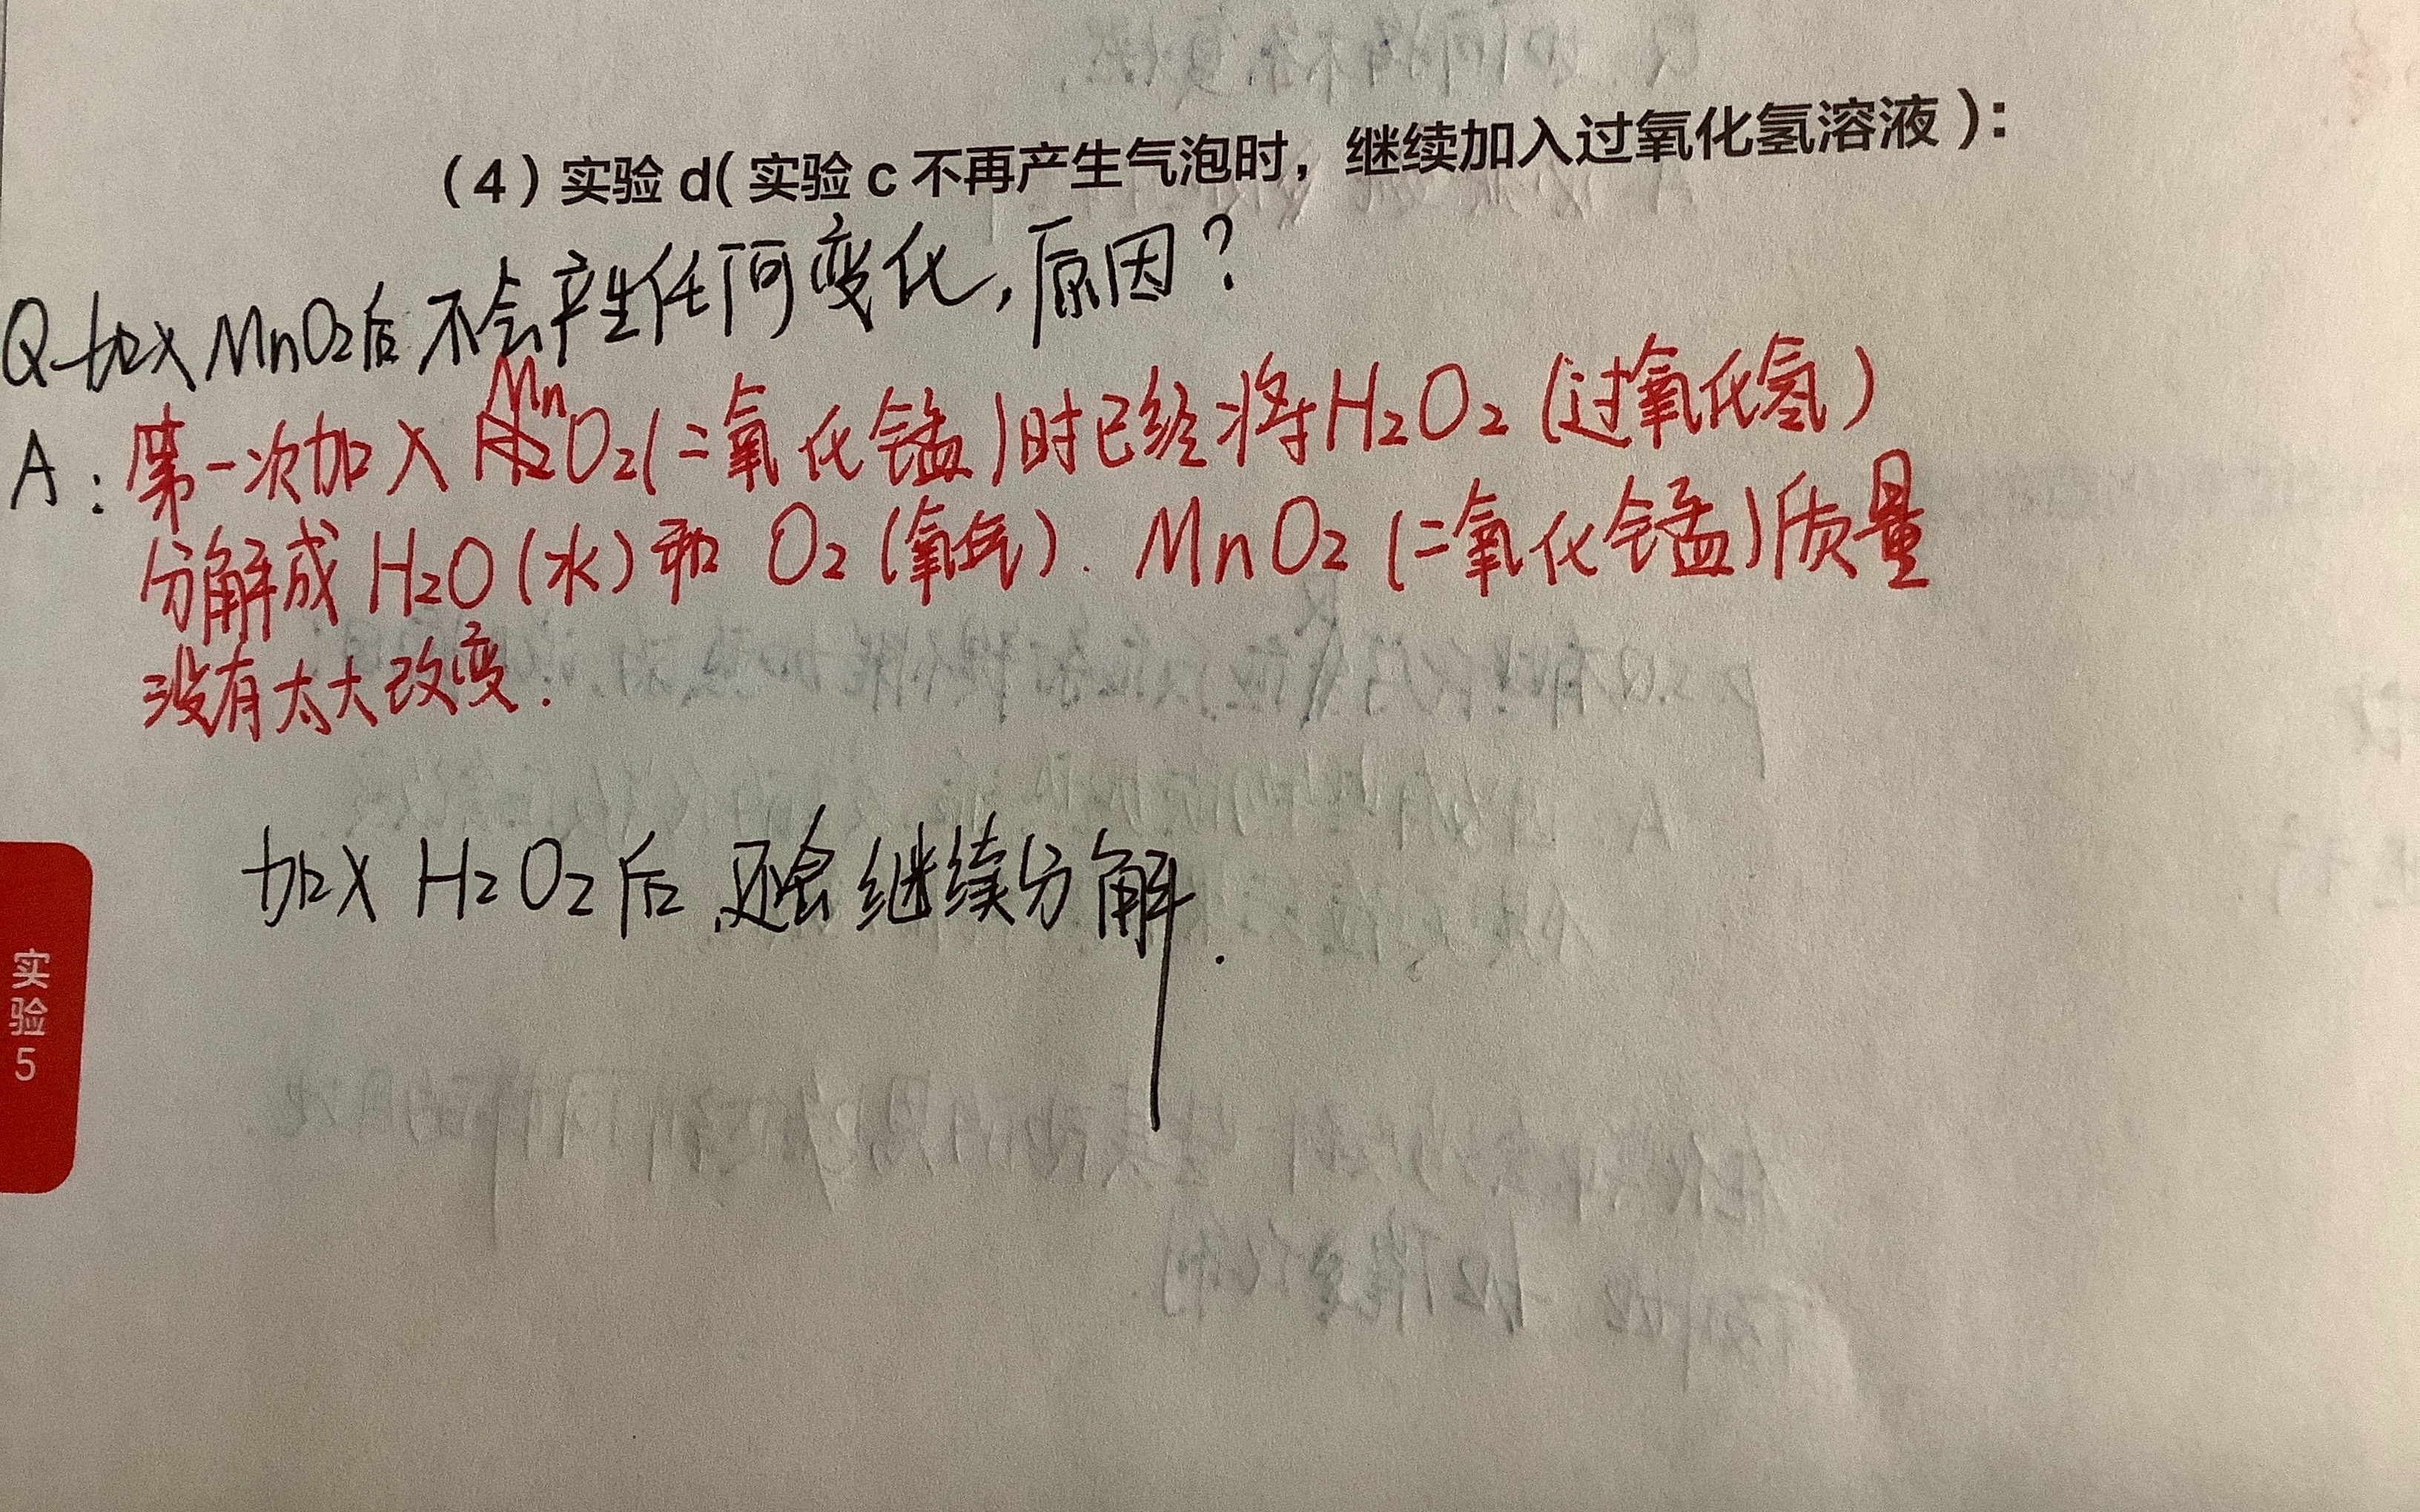 （4）实验d（实验c不再产生气泡时，继续加入过氧化氢溶液）：
Q 加入MnO2后不会产生任何变化，原因？
A：第一次加入MnO2（二氧化锰）时已经将H2O2（过氧化氢）
分解成H2O（水）和 O2（氧气）. MnO2（二氧化锰）质量
没有太大改变.
加入 H2O2后，还会继续分解.
实验5